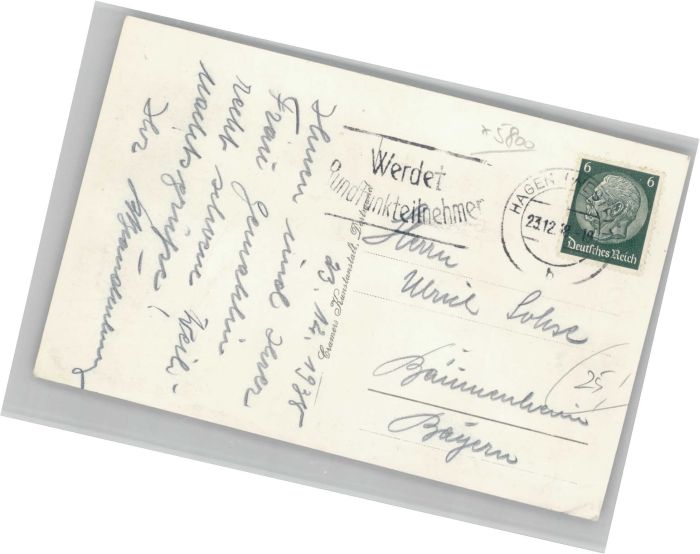 23.12.1938
Ihnen und Ihrer
Frau Gemahlin
recht schöne Weih-
nachtsgrüße!
Ihr
Cramers Kunstanstalt, Dortmund
*5800
Werdet
Rundfunkteilnehmer
HAGEN
23.12.38.-19
h
6 6
Deutsches Reich
Herrn
Ulrich Lohse
Bäumenheim
Bayern
25